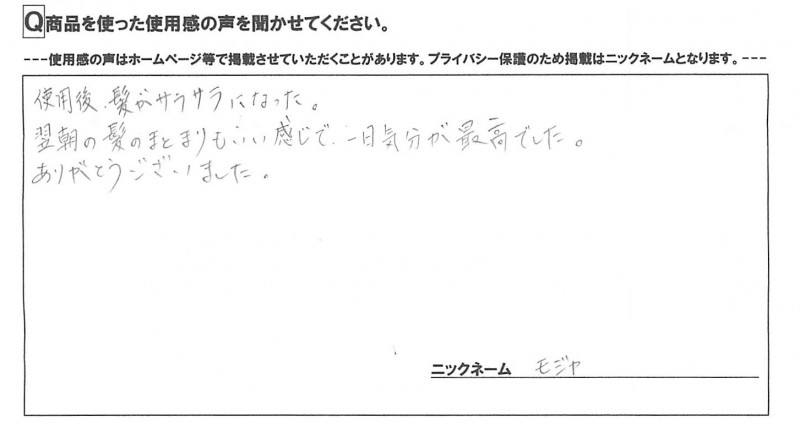 Q商品を使った使用感の声を聞かせてください。
---使用感の声はホームページ等で掲載させていただくことがあります。プライバシー保護のため掲載はニックネームとなります。---
使用後、髪がサラサラになった。
翌朝の髪のまとまりもいい感じで、一日気分が最高でした。
ありがとうございました。
ニックネーム モジャ